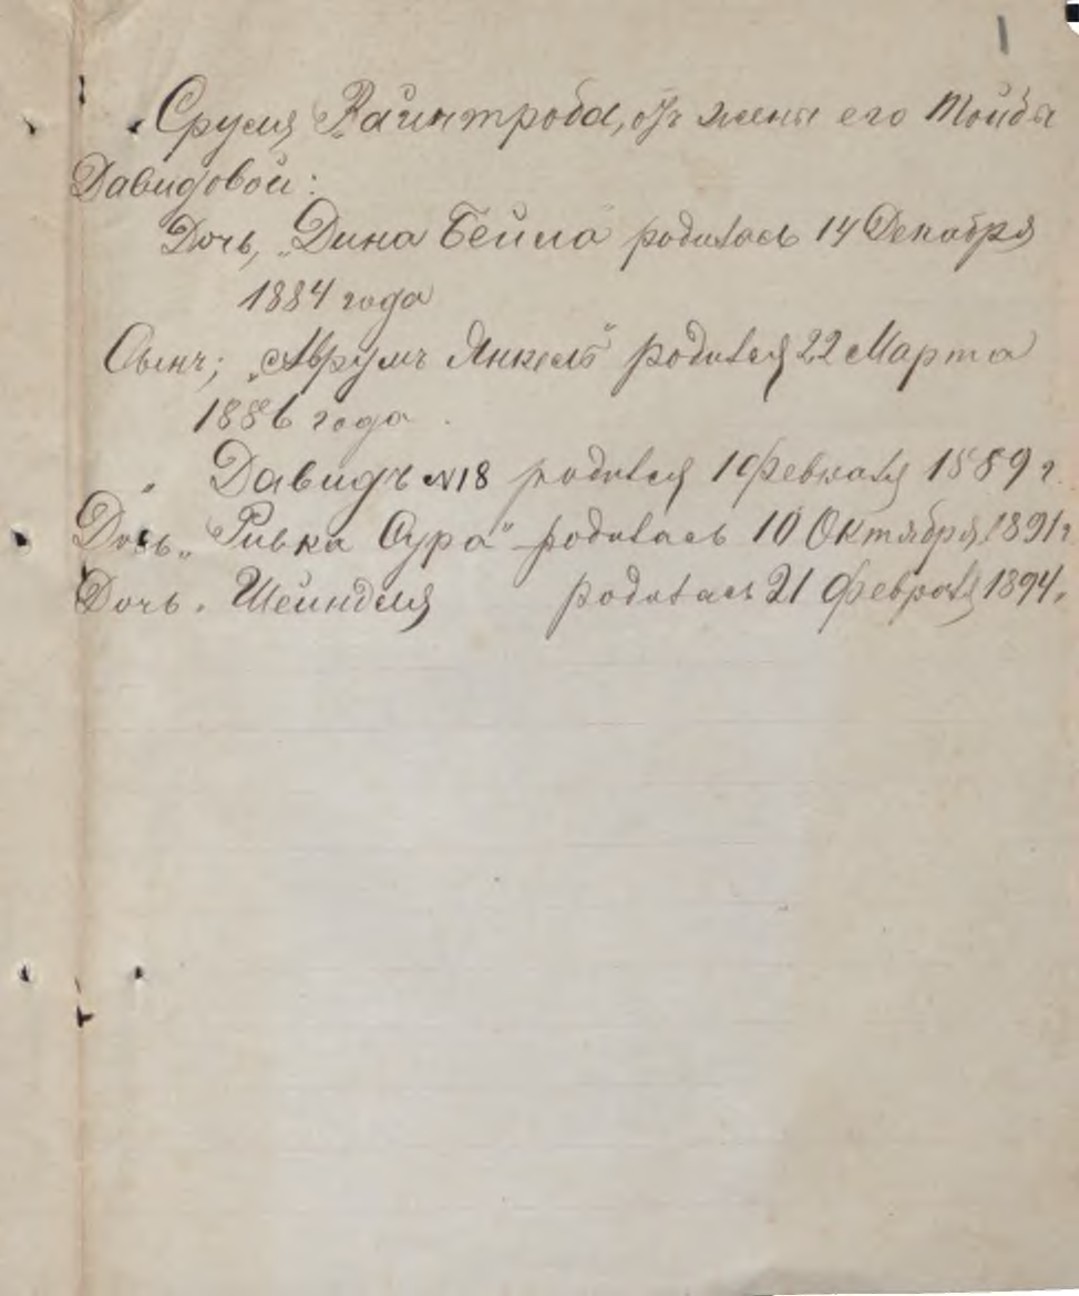 1
Сруля Вайнтроба, отъ жены его Тойбы
Давидовой:
Дочь, „Дина Бейла" родилась 14 Декабря
1884 года
Сынъ; „Аврумъ Янкель" родился 22 Марта
1886 года.
" Давидъ N18 родился 1 февраля 1889 г.
Дочь „Ривка Сура" родилась 10 Октября 1891 г
Дочь. Шейндля родилась 21 февраля 1894.